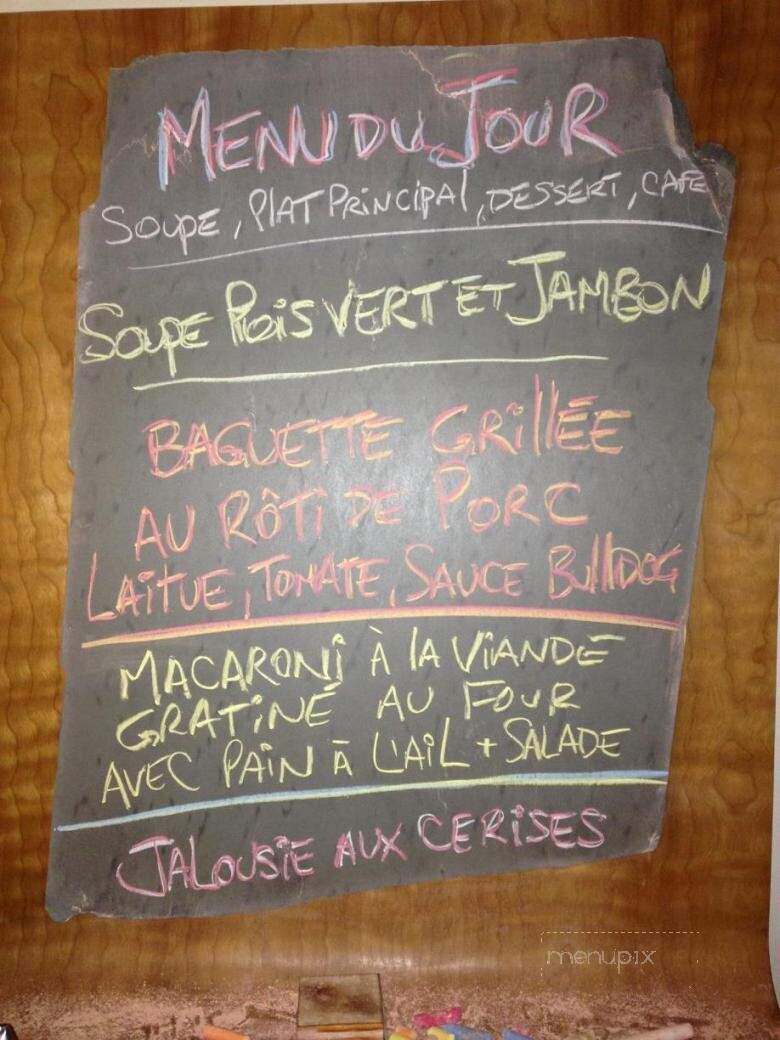 MENU DU JOUR
SOUPE, PLAT PRINCIPAL, DESSERT, CAFE
SOUPE POIS VERT ET JAMBON
BAGUETTE GRILLÉE
AU RÔTI DE PORC
LAITUE, TOMATE, SAUCE BULLDOG
MACARONI À LA VIANDE
GRATINÉ AU FOUR
AVEC PAIN À L'AIL + SALADE
JALOUSIE AUX CERISES
menupix